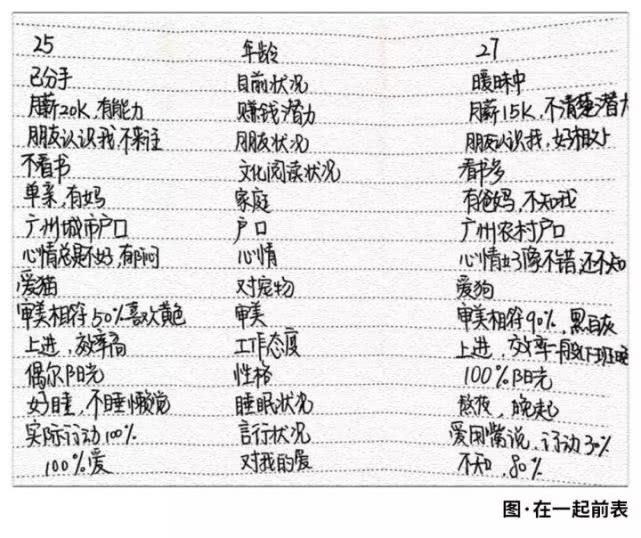 25 年龄 27
已分手 目前状况 暧昧中
月薪20K,有能力 赚钱潜力 月薪15K,不清楚潜力
朋友认识我不来往 朋友状况 朋友认识我,好相处
不看书 文化阅读状况 看书多
单亲,有妈 家庭 有爸妈,不知我
广州城市户口 户口 广州农村户口
心情总是不好,郁闷 心情 心情好像不错,还不知
爱猫 对宠物 爱狗
审美相符50%喜欢黄色 审美 审美相符90%,黑白灰
上进,效率高 工作态度 上进,效率一般,下班晚
偶尔阳光 性格 100%阳光
好睡,不睡懒觉 睡眠状况 熬夜,晚起
实际行动100% 言行状况 爱用嘴说,行动30%
100%爱 对我的爱 不知,80%
图·在一起前表